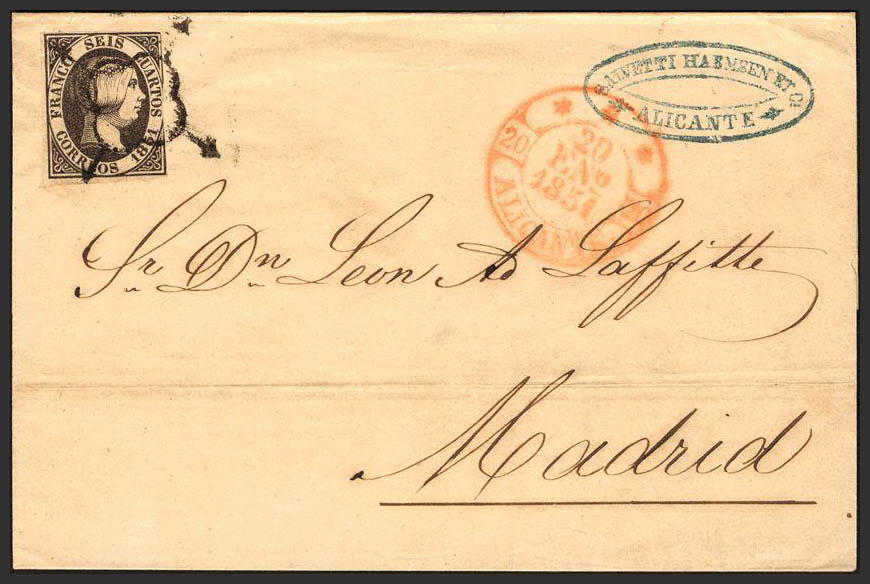 FRANCO SEIS CUARTOS
CORREOS 1851
HAEMSEN ET C.
ALICANTE
20
20
ENO
1851
ALICANTE
Sr. Dn. Leon Ad Laffitte
Madrid